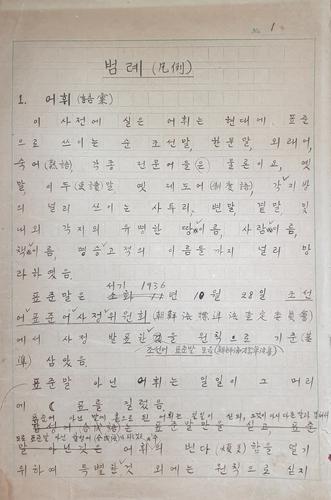 No. 1
범 례 (凡例)
1. 어휘 (語彙)
이 사전에 실은 어휘는 현대에 표준
으로 쓰이는 순 조선말, 한문말, 외래어,
숙어(熟語), 각종 전문어들(은) 물론이오, 옛
말, 이두(吏讀)말, 옛 제도어(制度語), 각 지방
의 널리 쓰이는 사투리, 변말, 곁말, 및
내외 각지의 유명한 땅이름, 사람이름,
책이름, 명승 고적의 이름들까지 널리 망
라하였음.
서기 1936
표준말은 소화 11년 10월 28일 조선
어 표준어 사정 위원회(朝鮮語標準語査定委員會)
에서 사정 발표한 을 원칙으로 기준(基
조선어 표준말 모음
準) 삼았음.
표준말 아닌 어휘는 일일이 그 머리
에 ( 표를 질렀음.
표준어 아닌 말이 홑으로 된 어휘는 일일이
합성어(合成語)는 표준말만을 싣고, 표준
말 아닌것은 어휘의 번다(煩多)함을 덜기
위하여 특별한것 외에는 원칙으로 싣지